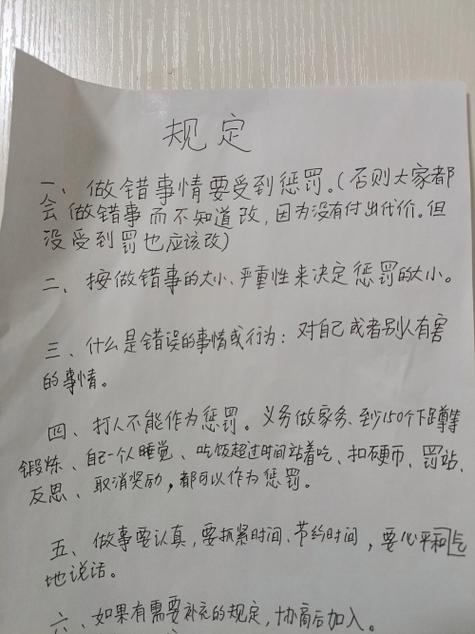 规定
一、做错事情要受到惩罚。(否则大家都
会做错事而不知道改,因为没有付出代价。但
没受到罚也应该改)
二、按做错事的大小、严重性来决定惩罚的大小。
三、什么是错误的事情或行为:对自己或者别人有害
的事情。
四、打人不能作为惩罚。义务做家务、至少150个下蹲等
锻炼、自己一个人睡觉、吃饭超过时间站着吃、扣硬币、罚站、
反思、取消奖励,都可以作为惩罚。
五、做事要认真,要抓紧时间、节约时间,要心平和气
地说话。
六、如果有需要补充的规定,协商后加入。